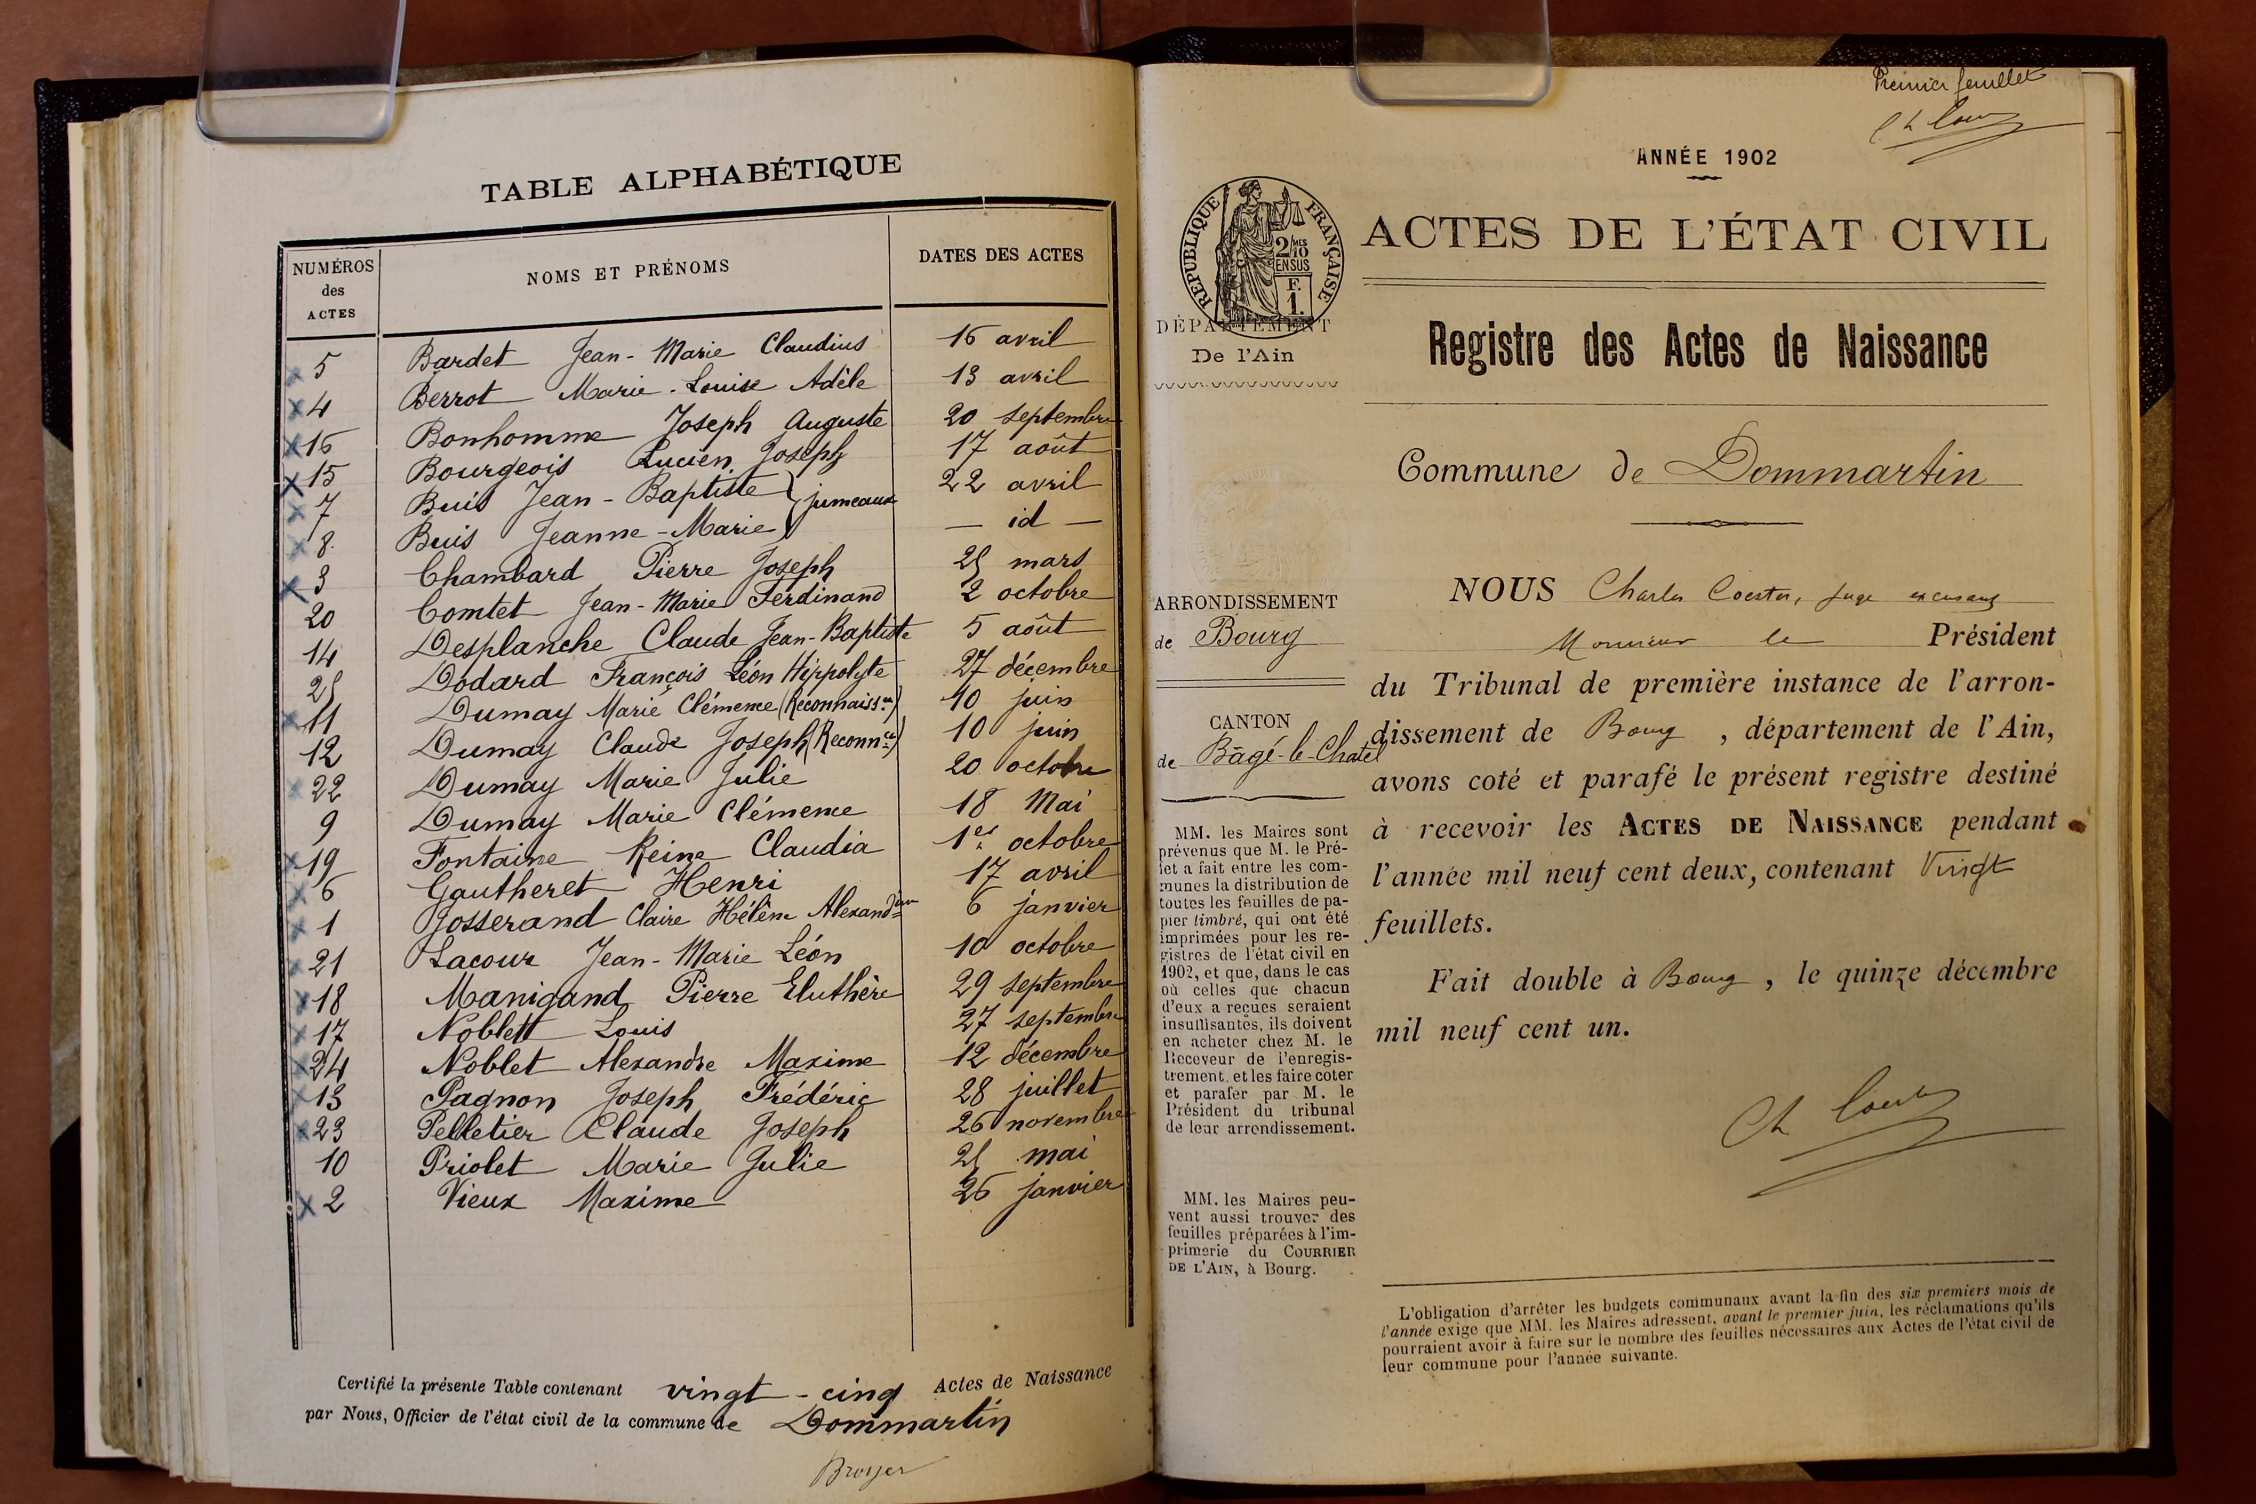 TABLE ALPHABÉTIQUE
NUMÉROS
des
ACTES
NOMS ET PRÉNOMS
DATES DES ACTES
5 Bardet Jean-Marie Claudius 16 avril
4 Berrot Marie-Louise Adèle 13 avril
16 Bonhomme Joseph Auguste 20 septembre
15 Bourgeois Lucien Joseph 17 août
7 Buis Jean-Baptiste } jumeaux 22 avril
8 Buis Jeanne-Marie — id —
3 Chambard Pierre Joseph 25 mars
20 Comtet Jean-Marie Ferdinand 2 octobre
14 Desplanche Claude Jean-Baptiste 5 août
25 Dodard François Léon Hippolyte 27 décembre
11 Dumay Marie Clémence (Reconnaiss.ce) 10 juin
12 Dumay Claude Joseph (Reconn.ce) 10 juin
22 Dumay Marie Julie 20 octobre
9 Dumay Marie Clémence 18 Mai
19 Fontaine Reine Claudia 1er octobre
6 Gautheret Henri 17 avril
1 Josserand Claire Hélène Alexandrine 6 janvier
21 Lacour Jean-Marie Léon 10 octobre
18 Manigand Pierre Eluthère 29 septembre
17 Noblet Louis 27 septembre
24 Noblet Alexandre Maxime 12 décembre
13 Pagnon Joseph Frédéric 28 juillet
23 Pelletier Claude Joseph 26 novembre
10 Priolet Marie Julie 25 mai
2 Vieux Maxime 26 janvier
Certifié la présente Table contenant vingt-cinq Actes de Naissance
par Nous, Officier de l'état civil de la commune de Dommartin
Broyer
Premier feuillet
ANNÉE 1902
RÉPUBLIQUE FRANÇAISE
2/MES
10
EN SUS
F.
1.
ACTES DE L'ÉTAT CIVIL
DÉPARTEMENT
De l'Ain
Registre des Actes de Naissance
Commune de Dommartin
ARRONDISSEMENT
de Bourg
CANTON
de Bâgé-le-Chatel
MM. les Maires sont
prévenus que M. le Pré-
fet a fait entre les com-
munes la distribution de
toutes les feuilles de pa-
pier timbré, qui ont été
imprimées pour les re-
gistres de l'état civil en
1902, et que, dans le cas
où celles que chacun
d'eux a reçues seraient
insuffisantes, ils doivent
en acheter chez M. le
Receveur de l'enregis-
trement, et les faire coter
et parafer par M. le
Président du tribunal
de leur arrondissement.
MM. les Maires peu-
vent aussi trouver des
feuilles préparées à l'im-
primerie du COURRIER
DE L'AIN, à Bourg.
NOUS Charles Coester, juge
Monsieur le Président
du Tribunal de première instance de l'arron-
dissement de Bourg, département de l'Ain,
avons coté et parafé le présent registre destiné
à recevoir les ACTES DE NAISSANCE pendant
l'année mil neuf cent deux, contenant Vingt
feuillets.
Fait double à Bourg, le quinze décembre
mil neuf cent un.
L'obligation d'arrêter les budgets communaux avant la fin des six premiers mois de
l'année exige que MM. les Maires adressent, avant le premier juin, les réclamations qu'ils
pourraient avoir à faire sur le nombre des feuilles nécessaires aux Actes de l'état civil de
leur commune pour l'année suivante.